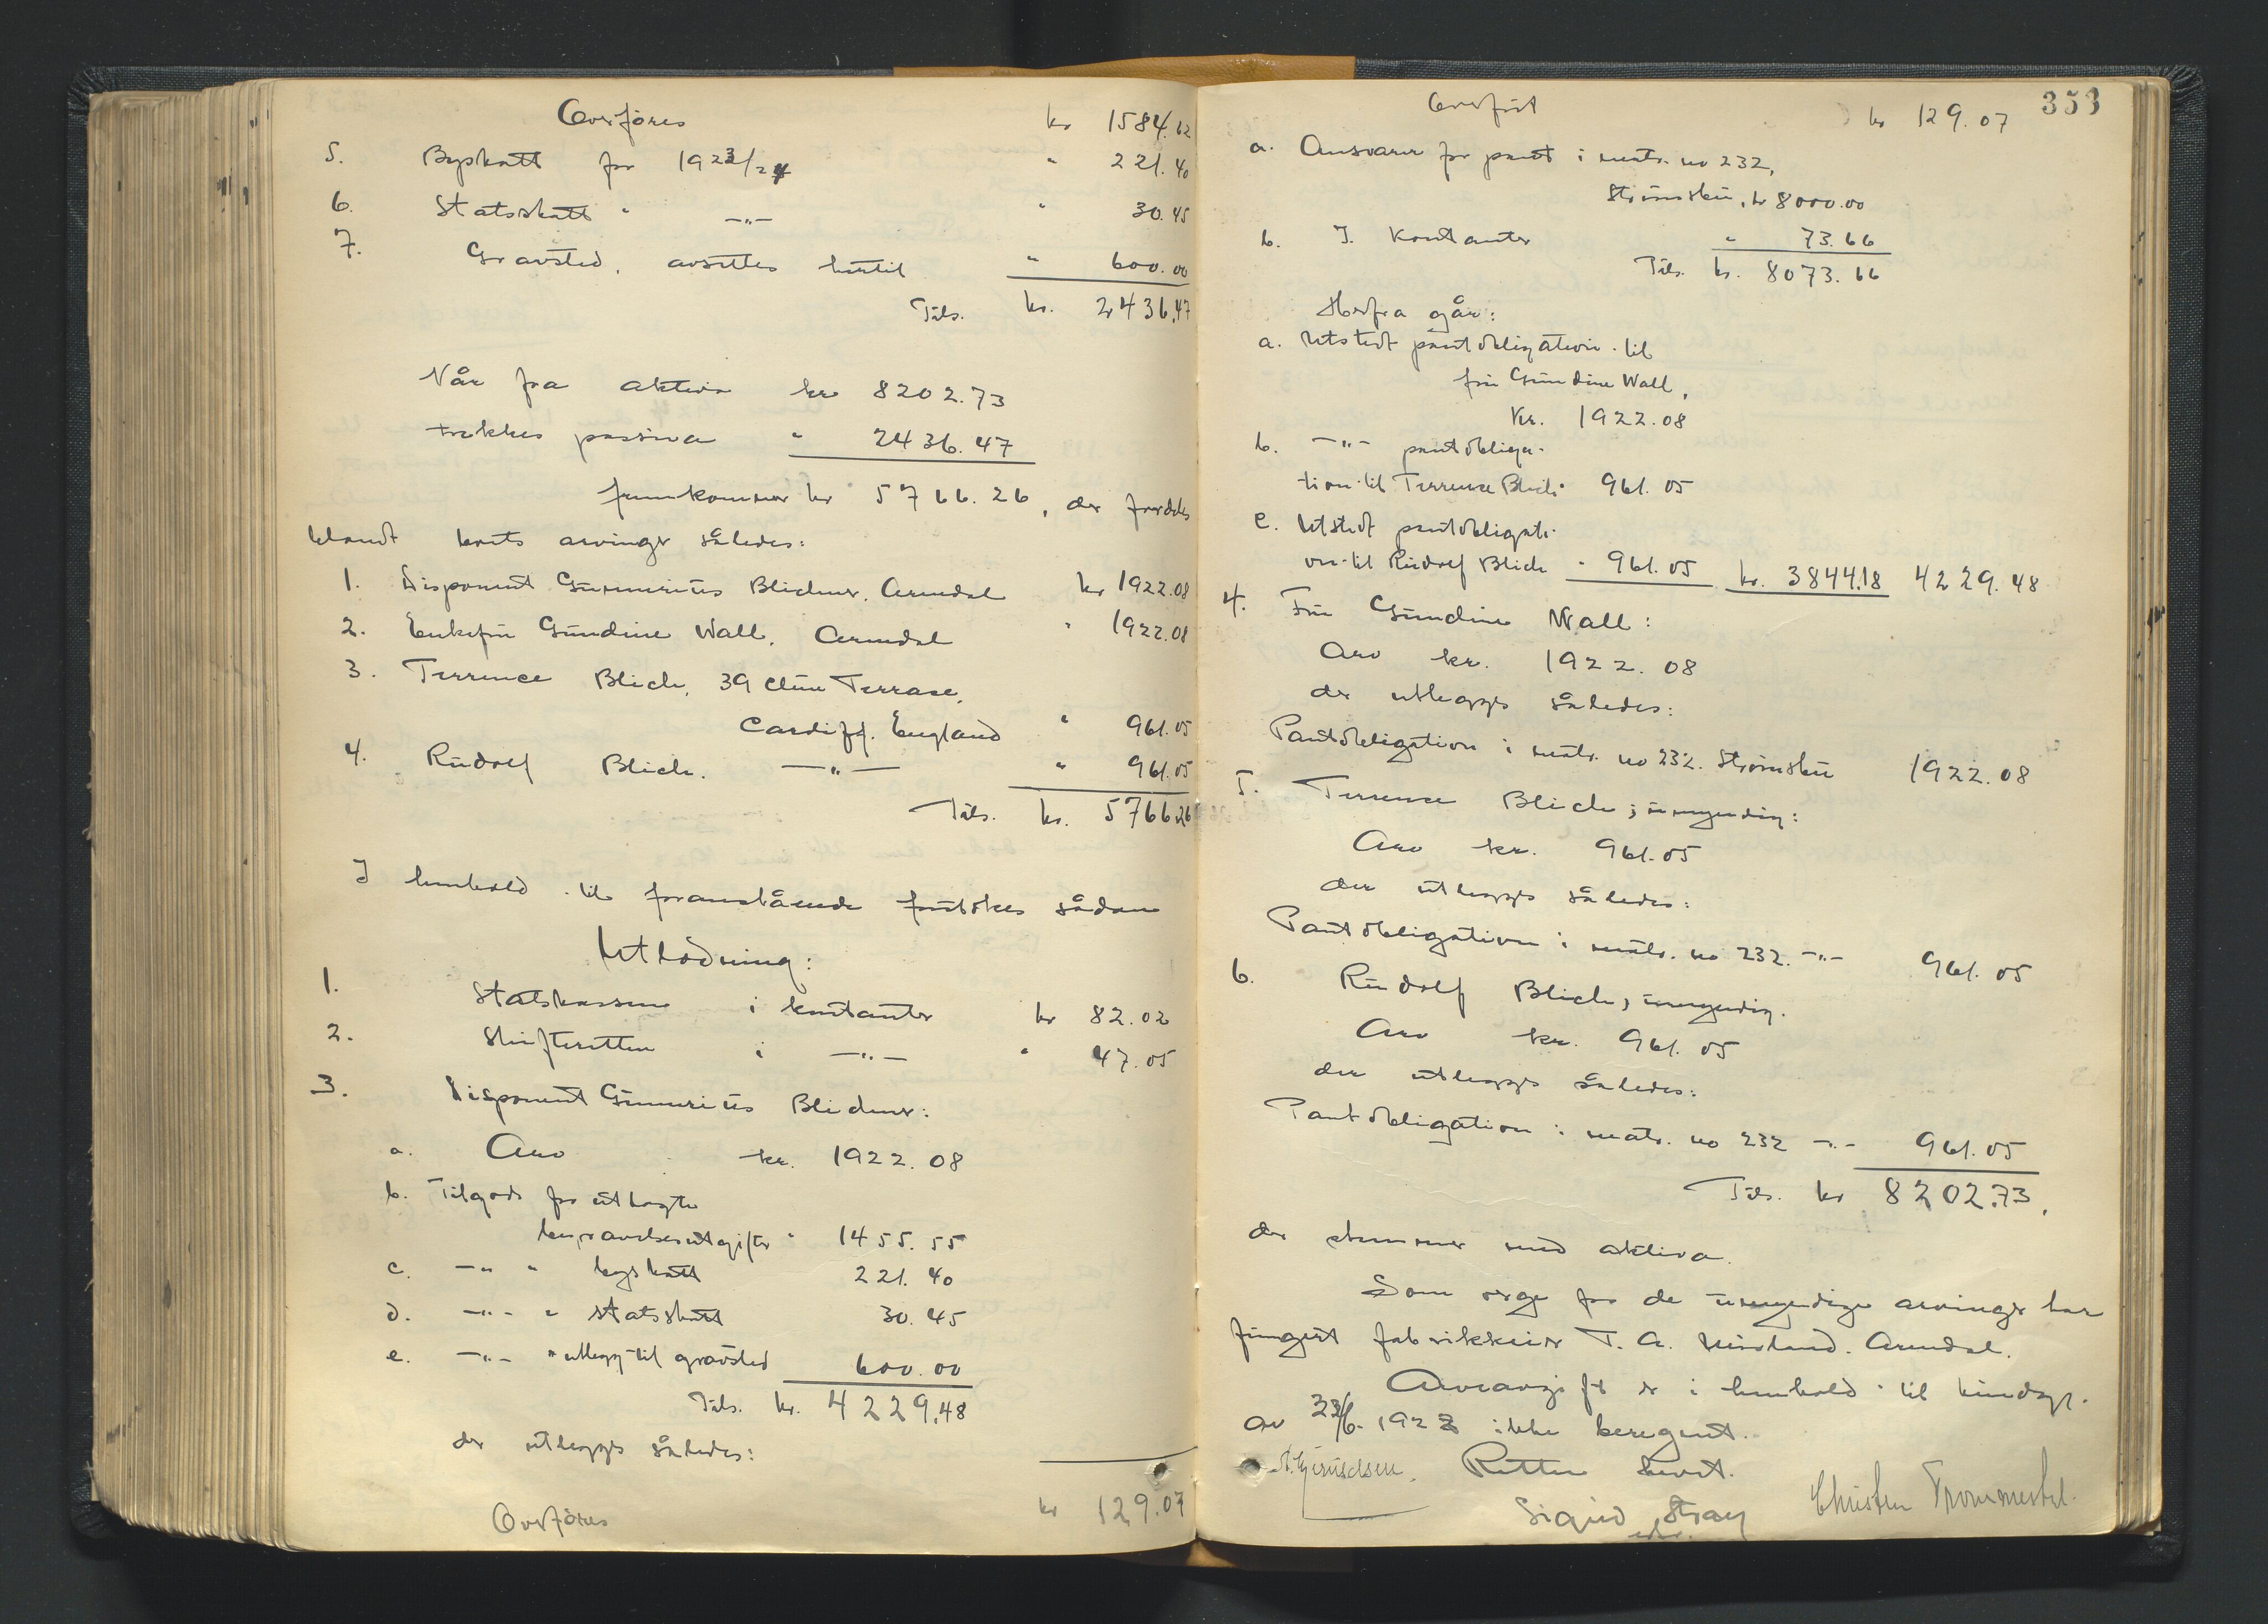 Overføres kr 1584.62
5. Byskatt for 1923/24 " 221.40
6. Statsskatt " —"— " 30.45
7. Gravsted, avsettes hertil " 600.00
Tils. kr. 2436.47
Når fra aktiva kr 8202.73
trekkes passiva " 2436.47
fremkommer kr 5766.26, der fordeles
blandt boets arvinger således:
1. Disponent Gunnerius Blichner, Arendal kr 1922.08
2. Enkefru Gundine Wall, Arendal " 1922.08
3. Terrence Blich, 39 Clive Terrase,
Cardiff. England " 961.05
4. Rudolf Blich. —"— " 961.05
Tils. kr. 5766.26
I henhold til foranstående foretokes sådan
Utlodning:
1. Statskassen i kontanter kr 82.02
2. Skifteretten i —"— " 47.05
3. Disponent Gunnerius Blichner:
a. Arv kr. 1922.08
b. Tilgode for utlagte
begravelsesutgifter " 1455.55
c. —" " byskatt 221.40
d. —"— " statsskatt 30.45
e. —"— " utlegg til gravsted 600.00
Tils. kr. 4229.48
der utlegges således:
Overføres kr 129.07
353
Overført kr 129.07
a. Ansvarer for pant i matr. no 232,
Strømsbu, kr 8000.00
b. I. Kontanter " 73.66
Tils. kr. 8073.66
Herfra går:
a. Utstedt pantobligation til
fru Gundine Wall,
Kr. 1922.08
b. —"— pantobliga-
tion til Terrence Blich " 961.05
c. Utstedt pantobligati-
on til Rudolf Blich " 961.05 kr. 3844.18 4229.48
4. Fru Gundine Wall:
Arv kr. 1922.08
der utlegges således:
Pantobligation i matr. no 232. Strømsbu 1922.08
5. Terrence Blich, umyndig:
Arv kr. 961.05
der utlegges således:
Pantobligation i matr. no 232. —"— 961.05
6. Rudolf Blich, umyndig.
Arv kr. 961.05
der utlegges således:
Pantobligation i matr. no 232 —"— 961.05
Tils. kr 8202.73,
der stemmer med aktiva.
Som verge for de umyndige arvinger har
fungert fabrikkeier T. A. Arendal.
Arveavgift er i henhold til kundgj.
av 23/6. 1922 ikke beregnet.
Retten hevet.
Sigrid Stray Christen Trommestad.